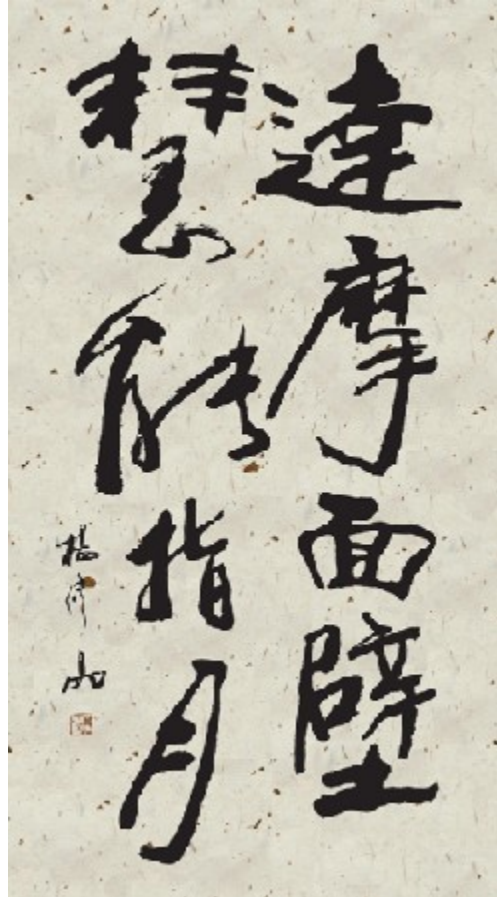 達摩面壁
慧能指月